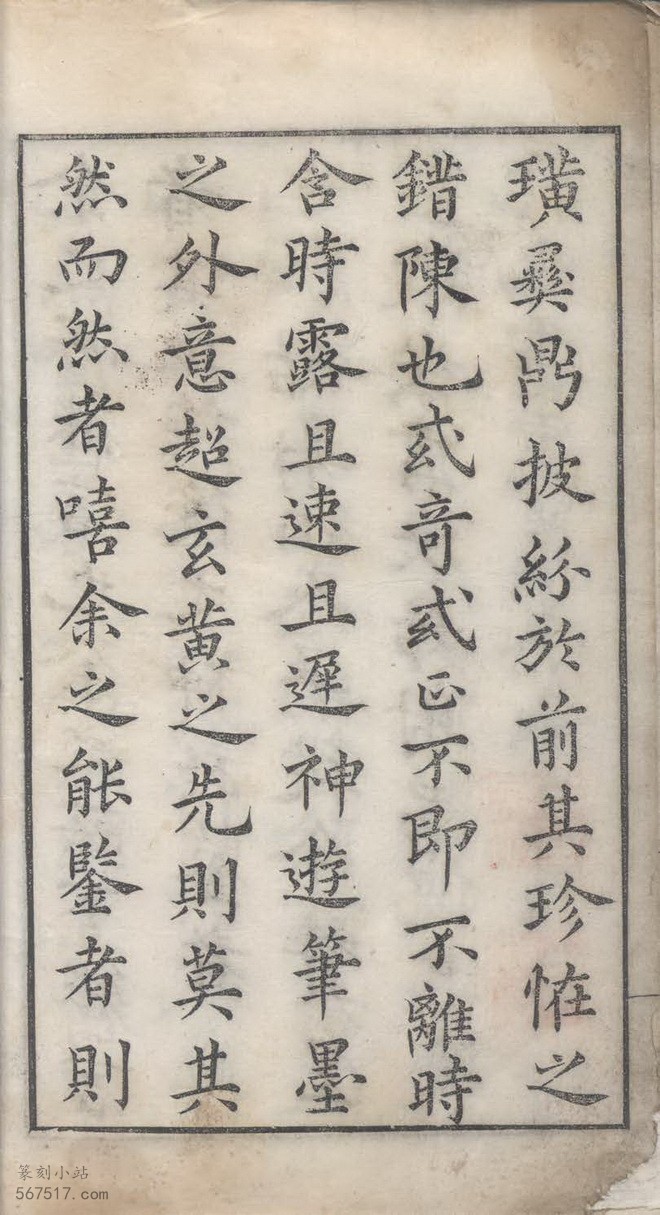 璜彝鼎披紛於前其珍恠之
錯陳也或奇或正不即不離時
含時露且速且遲神遊筆墨
之外意超玄黃之先則莫其
然而然者嘻余之能鑒者則
篆刻小站
567517.com